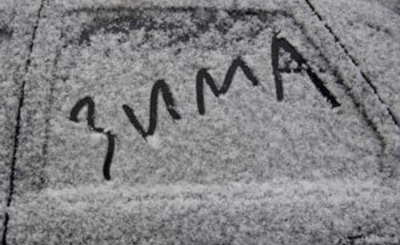 ЗИМА